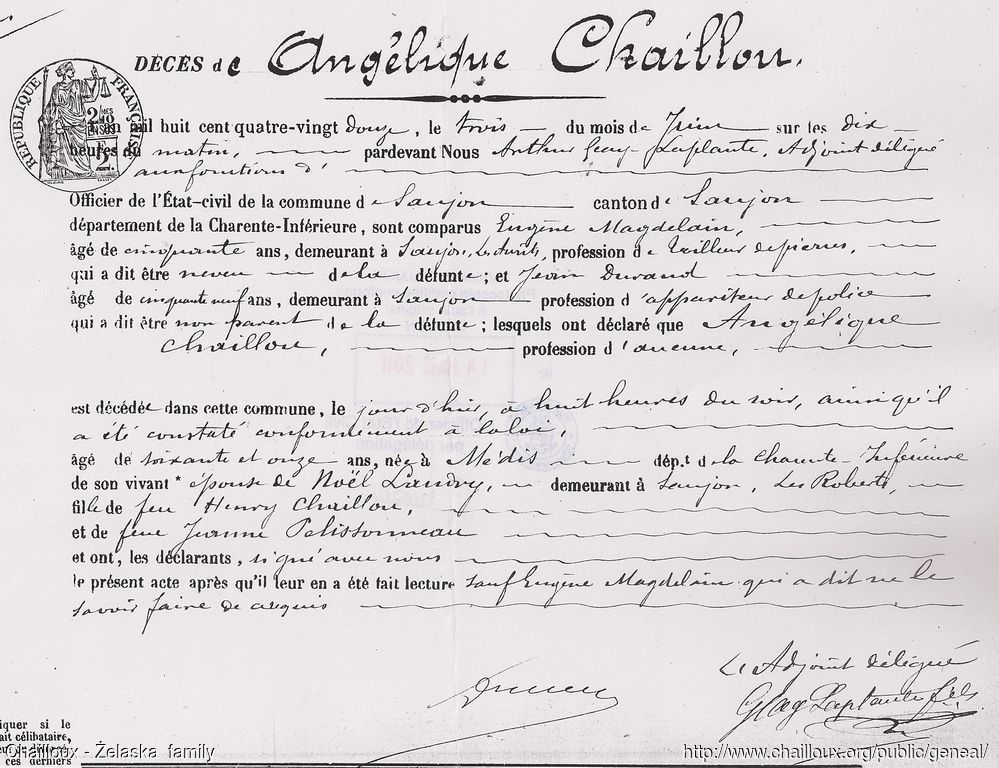 DÉCES de Angélique Chaillou.
RÉPUBLIQUE FRANÇAISE
L'an mil huit cent quatre-vingt douze, le trois du mois de Juin sur les dix
heures du matin, pardevant Nous Arthur Laplante, Adjoint délégué
aux fonctions d'
Officier de l'État-civil de la commune de Saujon canton de Saujon
département de la Charente-Inférieure, sont comparus Eugène Magdelain,
âgé de cinquante ans, demeurant à Saujon, profession de tailleur de pierres,
qui a dit être neveu de la défunte; et Jean Durand
âgé de cinquante neuf ans, demeurant à Saujon profession d'appariteur de police
qui a dit être non parent de la défunte; lesquels ont déclaré que Angélique
Chaillou, profession d'aucune,
est décédée dans cette commune, le jour d'hier, à huit heures du soir, ainsi qu'il
a été constaté conformément à la loi
âgé de soixante et onze ans, née à Médis dép.t de la Charente-Inférieure
de son vivant * épouse de Noël Landry, demeurant à Saujon, Les Roberts,
fille de feu Henry Chaillou,
et de feue Jeanne Pelissonneau
et ont, les déclarants, signé avec nous
le présent acte après qu'il leur en a été fait lecture sauf Eugène Magdelain qui a dit ne le
savoir faire de requis
L'Adjoint délégué
Laplante fils
iquer si le
ait célibataire,
ces derniers
Chailloux - Želaska family
http://www.chailloux.org/public/geneal/